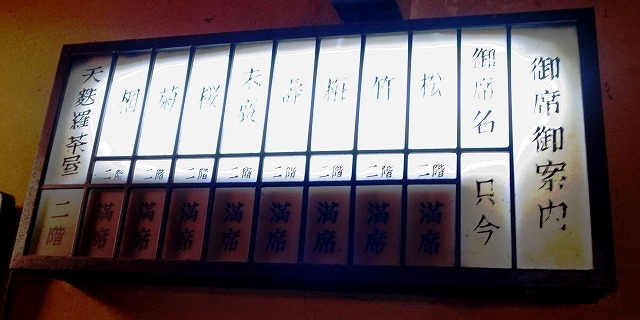 御席御案内
御席名
只今
松
二階
満席
竹
二階
満席
梅
二階
満席
二階
満席
末廣
二階
満席
桜
二階
満席
菊
二階
満席
桐
二階
満席
天麩羅茶屋
二階